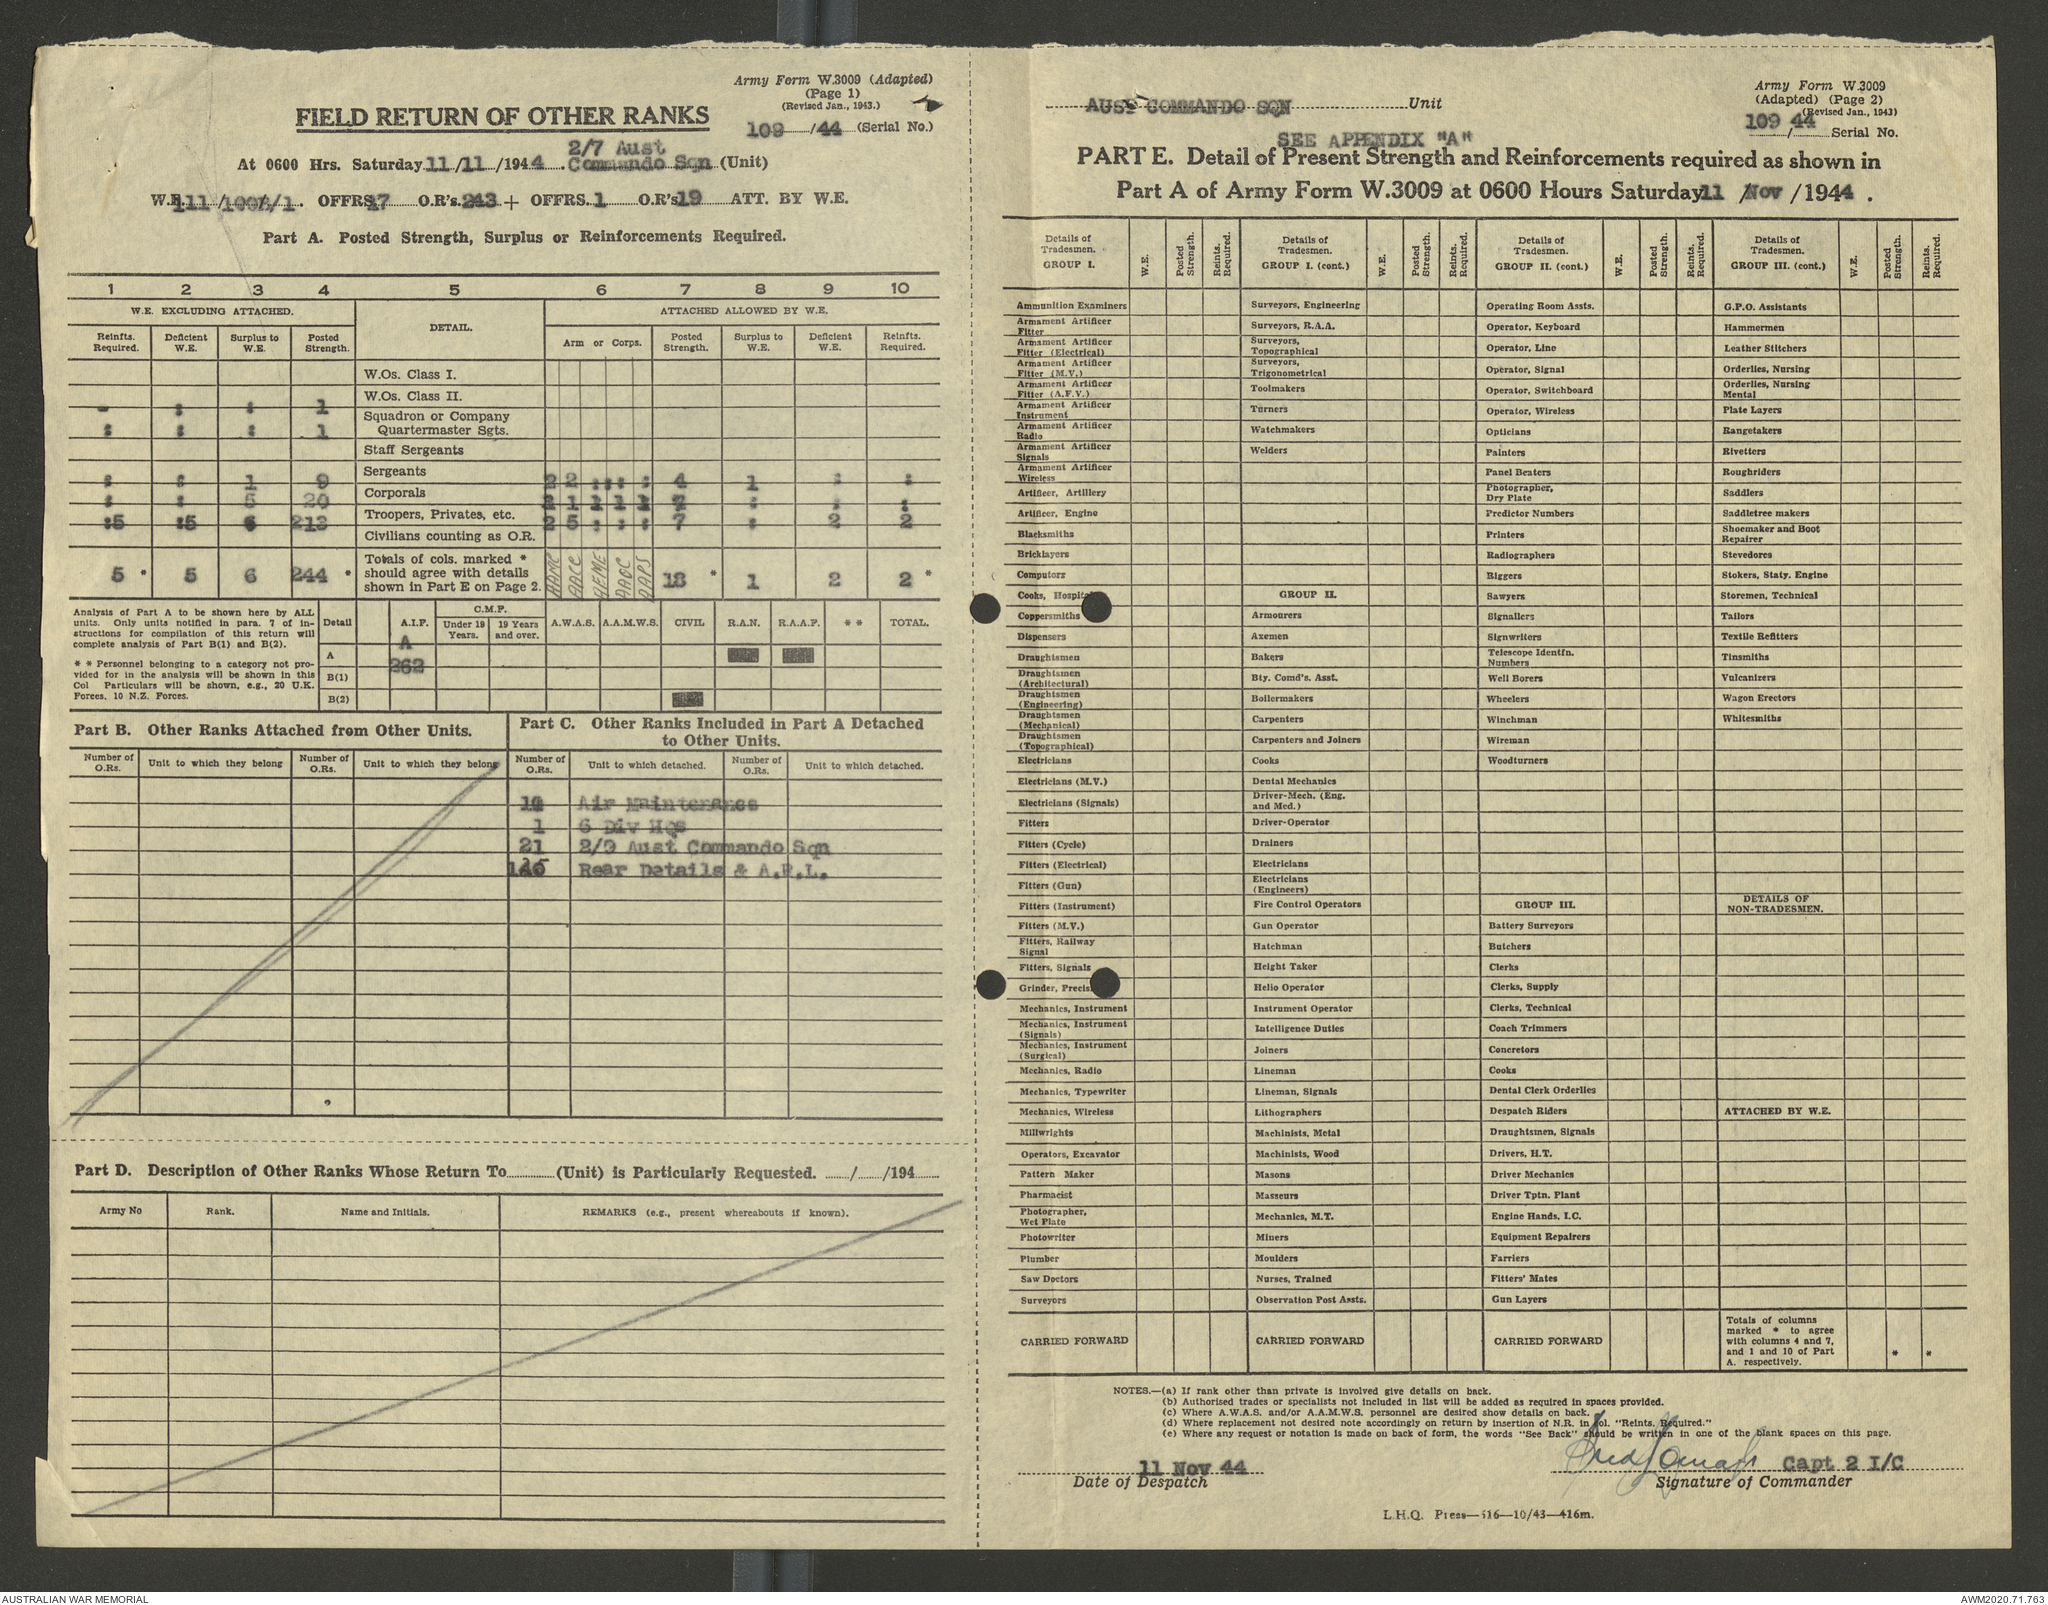 Army Form W.3009 (Adapted)
(Page 1)
(Revised Jan., 1943.)
FIELD RETURN OF OTHER RANKS
109 /44 (Serial No.)
2/7 Aust
At 0600 Hrs. Saturday 11/11/1944. Commando Sqn (Unit)
OFFRS 17 O.R's. 243 + OFFRS. 1 O.R's 19 ATT. BY W.E.
Part A. Posted Strength, Surplus or Reinforcements Required.
1 2 3 4 5 6 7 8 9 10
W.E. EXCLUDING ATTACHED. DETAIL. ATTACHED ALLOWED BY W.E.
Reinfts. Required. Deficient W.E. Surplus to W.E. Posted Strength. Arm or Corps. Posted Strength. Surplus to W.E. Deficient W.E. Reinfts. Required.
W.Os. Class I.
W.Os. Class II.
- : : 1 Squadron or Company
: : : 1 Quartermaster Sgts.
Staff Sergeants
Sergeants
: : 1 9 2 2 : : : 4 1 : :
Corporals
: : 5 20
Troopers, Privates, etc.
:5 :5 6 213 2 5 : : : 7 : 2 2
Civilians counting as O.R.
Totals of cols. marked *
should agree with details
shown in Part E on Page 2.
5 * 5 6 244 * AAMC AACC AEME AAOC AAPS 18 * 1 2 2 *
Analysis of Part A to be shown here by ALL
units. Only units notified in para. 7 of in-
structions for compilation of this return will
complete analysis of Part B(1) and B(2).
* * Personnel belonging to a category not pro-
vided for in the analysis will be shown in this
Col Particulars will be shown, e.g., 20 U.K.
Forces, 10 N.Z. Forces.
Detail A.I.F. C.M.F. Under 19 Years. 19 Years and over. A.W.A.S. A.A.M.W.S. CIVIL R.A.N. R.A.A.F. * * TOTAL.
A
A
B(1) 262
B(2)
Part B. Other Ranks Attached from Other Units.
Number of O.Rs. Unit to which they belong Number of O.Rs. Unit to which they belong
Part C. Other Ranks Included in Part A Detached
to Other Units.
Number of O.Rs. Unit to which detached. Number of O.Rs. Unit to which detached.
Air Maintenance
1 6 Div Hqs
21 2/9 Aust Commando Sqn
Rear Details & A.R.L.
Part D. Description of Other Ranks Whose Return To (Unit) is Particularly Requested. / /194
Army No Rank. Name and Initials. REMARKS (e.g., present whereabouts if known).
Army Form W.3009
(Adapted) (Page 2)
(Revised Jan., 1943)
AUST COMMANDO SQN Unit
109 44
/ Serial No.
SEE APPENDIX "A"
PART E. Detail of Present Strength and Reinforcements required as shown in
Part A of Army Form W.3009 at 0600 Hours Saturday 11 /Nov /1944.
Details of Tradesmen. GROUP I. W.E. Posted Strength. Reints. Required.
Ammunition Examiners
Armament Artificer Fitter
Armament Artificer Fitter (Electrical)
Armament Artificer Fitter (M.V.)
Armament Artificer Fitter (A.F.V.)
Armament Artificer Instrument
Armament Artificer Radio
Armament Artificer Signals
Armament Artificer Wireless
Artificer, Artillery
Artificer, Engine
Blacksmiths
Bricklayers
Computors
Cooks, Hospital
Coppersmiths
Dispensers
Draughtsmen
Draughtsmen (Architectural)
Draughtsmen (Engineering)
Draughtsmen (Mechanical)
Draughtsmen (Topographical)
Electricians
Electricians (M.V.)
Electricians (Signals)
Fitters
Fitters (Cycle)
Fitters (Electrical)
Fitters (Gun)
Fitters (Instrument)
Fitters (M.V.)
Fitters, Railway Signal
Fitters, Signals
Grinder, Precis
Mechanics, Instrument
Mechanics, Instrument (Signals)
Mechanics, Instrument (Surgical)
Mechanics, Radio
Mechanics, Typewriter
Mechanics, Wireless
Millwrights
Operators, Excavator
Pattern Maker
Pharmacist
Photographer, Wet Plate
Photowriter
Plumber
Saw Doctors
Surveyors
CARRIED FORWARD
Details of Tradesmen. GROUP I. (cont.) W.E. Posted Strength. Reints. Required.
Surveyors, Engineering
Surveyors, R.A.A.
Surveyors, Topographical
Surveyors, Trigonometrical
Toolmakers
Turners
Watchmakers
Welders
GROUP II.
Armourers
Axemen
Bakers
Bty. Comd's. Asst.
Boilermakers
Carpenters
Carpenters and Joiners
Cooks
Dental Mechanics
Driver-Mech. (Eng. and Med.)
Driver-Operator
Drainers
Electricians
Electricians (Engineers)
Fire Control Operators
Gun Operator
Hatchman
Height Taker
Helio Operator
Instrument Operator
Intelligence Duties
Joiners
Lineman
Lineman, Signals
Lithographers
Machinists, Metal
Machinists, Wood
Masons
Masseurs
Mechanics, M.T.
Miners
Moulders
Nurses, Trained
Observation Post Assts.
CARRIED FORWARD
Details of Tradesmen. GROUP II. (cont.) W.E. Posted Strength. Reints. Required.
Operating Room Assts.
Operator, Keyboard
Operator, Line
Operator, Signal
Operator, Switchboard
Operator, Wireless
Opticians
Painters
Panel Beaters
Photographer, Dry Plate
Predictor Numbers
Printers
Radiographers
Riggers
Sawyers
Signallers
Signwriters
Telescope Identfn. Numbers
Well Borers
Wheelers
Winchman
Wireman
Woodturners
GROUP III.
Battery Surveyors
Butchers
Clerks
Clerks, Supply
Clerks, Technical
Coach Trimmers
Concretors
Cooks
Dental Clerk Orderlies
Despatch Riders
Draughtsmen, Signals
Drivers, H.T.
Driver Mechanics
Driver Tptn. Plant
Engine Hands, I.C.
Equipment Repairers
Farriers
Fitters' Mates
Gun Layers
CARRIED FORWARD
Details of Tradesmen. GROUP III. (cont.) W.E. Posted Strength. Reints. Required.
G.P.O. Assistants
Hammermen
Leather Stitchers
Orderlies, Nursing
Orderlies, Nursing Mental
Plate Layers
Rangetakers
Rivetters
Roughriders
Saddlers
Saddletree makers
Shoemaker and Boot Repairer
Stevedores
Stokers, Staty. Engine
Storemen, Technical
Tailors
Textile Refitters
Tinsmiths
Vulcanizers
Wagon Erectors
Whitesmiths
DETAILS OF NON-TRADESMEN.
ATTACHED BY W.E.
Totals of columns
marked * to agree
with columns 4 and 7,
and 1 and 10 of Part
A. respectively. * *
NOTES.—(a) If rank other than private is involved give details on back.
(b) Authorised trades or specialists not included in list will be added as required in spaces provided.
(c) Where A.W.A.S. and/or A.A.M.W.S. personnel are desired show details on back.
(d) Where replacement not desired note accordingly on return by insertion of N.R. in col. "Reints. Required."
(e) Where any request or notation is made on back of form, the words "See Back" should be written in one of the blank spaces on this page.
11 Nov 44 Capt 2 I/C
Date of Despatch Signature of Commander
L.H.Q. Press—516—10/43—416m.
AUSTRALIAN WAR MEMORIAL AWM2020.71.763